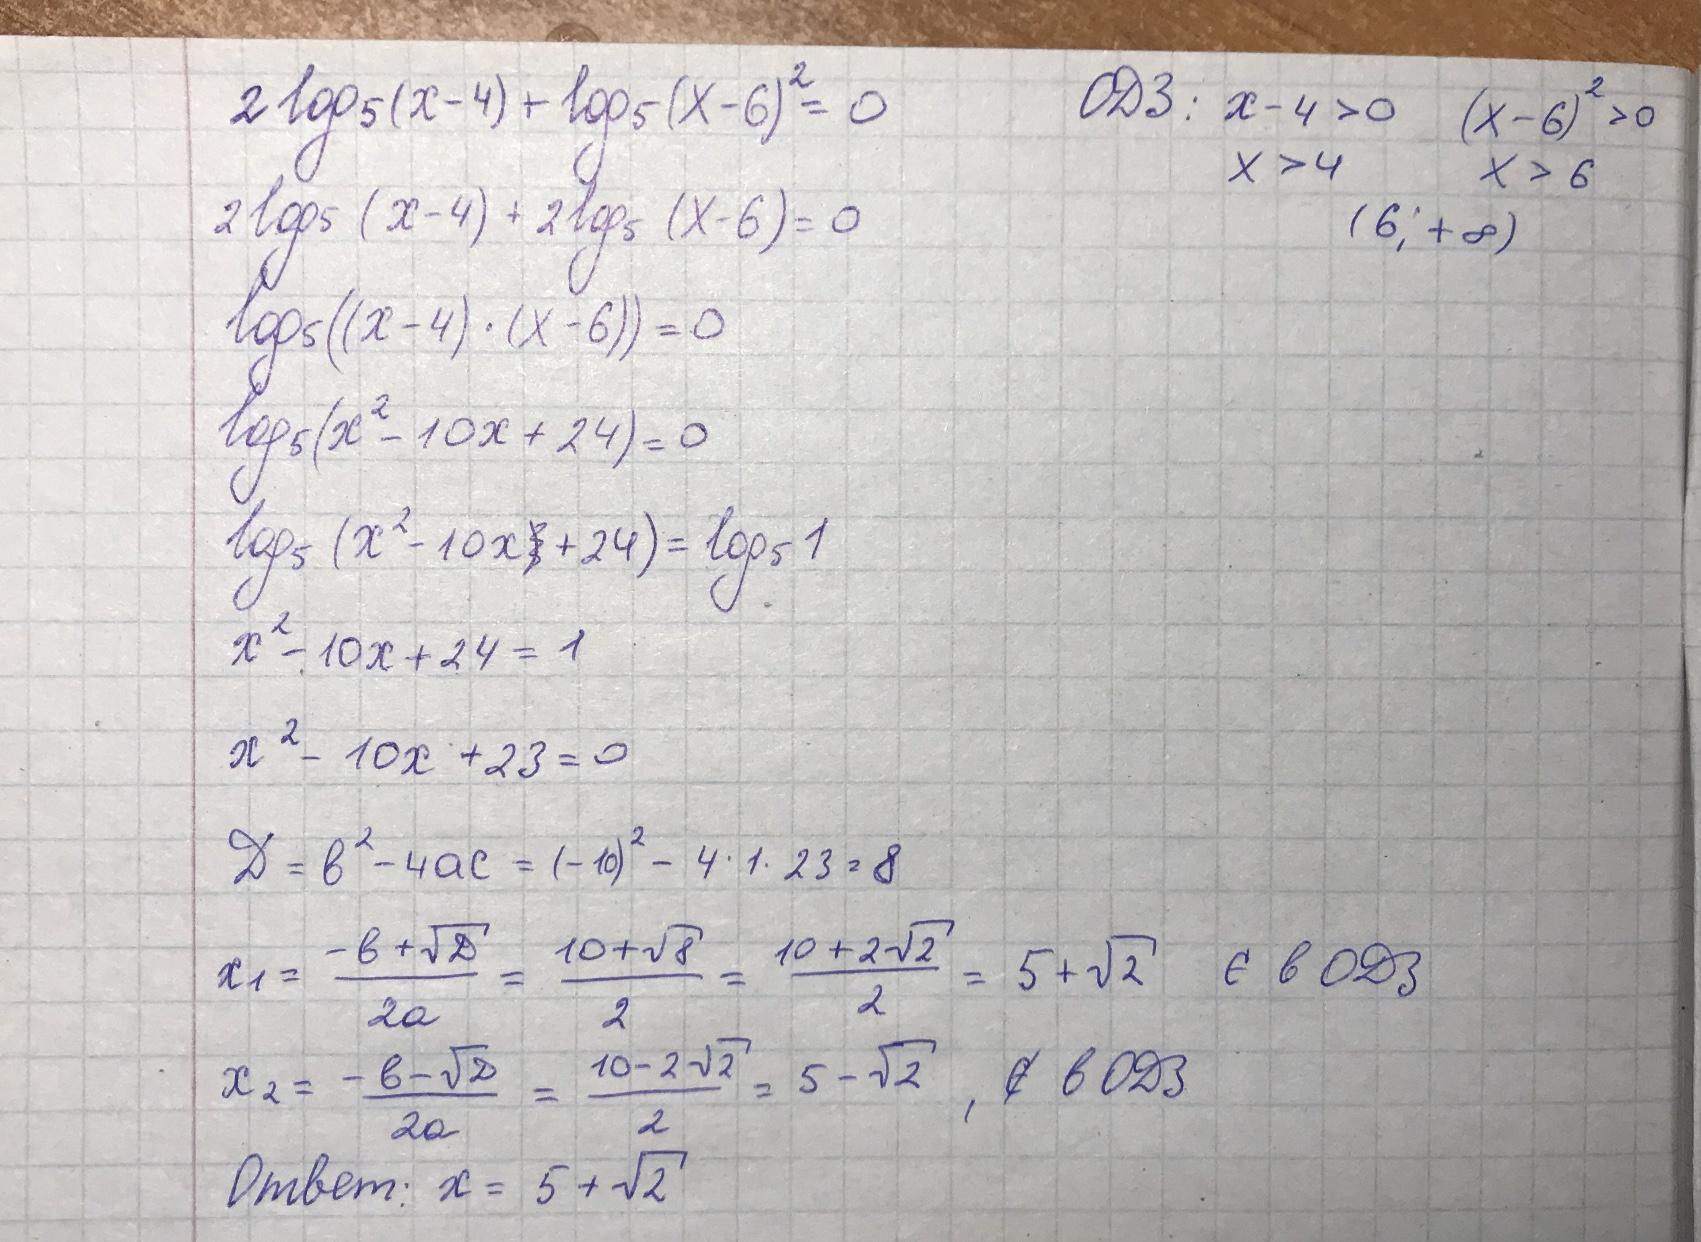 2 log₅(x-4) + log₅(x-6)² = 0
ОДЗ: x-4>0 (x-6)²>0
x>4 x>6
(6; +∞)
2 log₅ (x-4) + 2 log₅ (x-6) = 0
log₅((x-4)·(x-6)) = 0
log₅(x² - 10x + 24) = 0
log₅ (x² - 10x + 24) = log₅ 1
x² - 10x + 24 = 1
x² - 10x + 23 = 0
Д = в² - 4ac = (-10)² - 4·1·23 = 8
x₁ = (-в+√Д)/2a = (10+√8)/2 = (10+2√2)/2 = 5+√2 ∈ в ОДЗ
x₂ = (-в-√Д)/2a = (10-2√2)/2 = 5-√2, ∉ в ОДЗ
Ответ: x = 5+√2